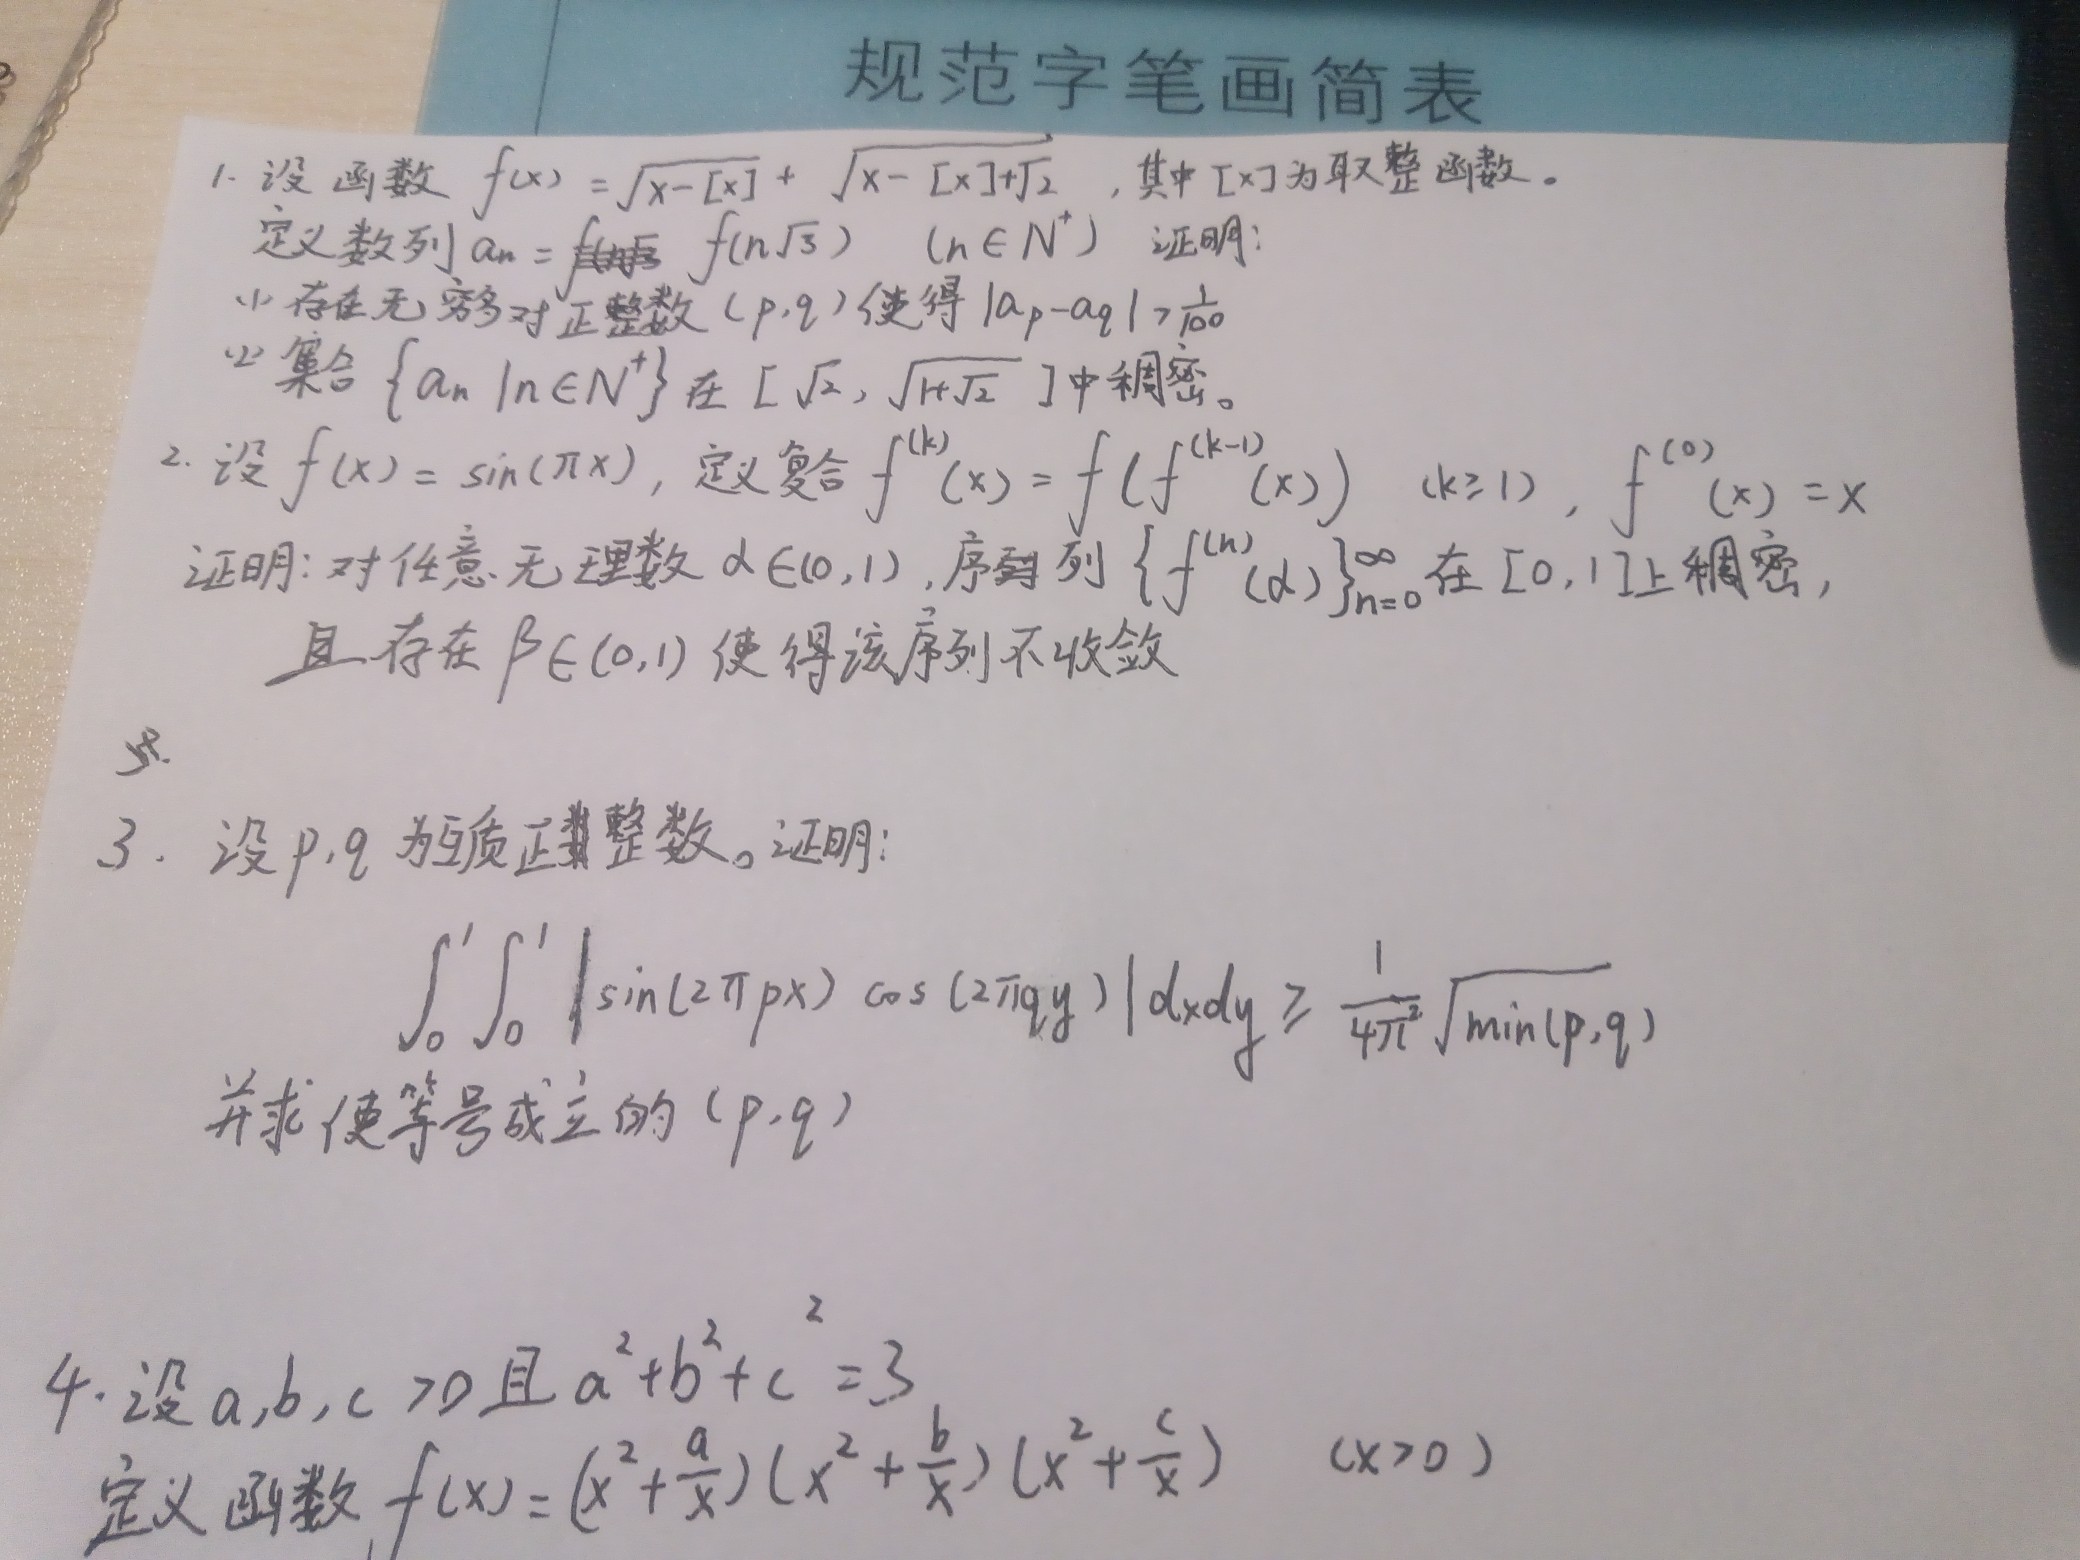 规范字笔画简表
1. 设函数 f(x) = √(x-[x]) + √(x-[x]+√2) , 其中[x]为取整函数。
定义数列 aₙ = f(n√3) (n∈N⁺) 证明:
(1) 存在无穷多对正整数(p,q)使得|aₚ-a_q|>1/100
(2) 集合{aₙ|n∈N⁺}在[√2, √(1+√2)]中稠密。
2. 设f(x)=sin(πx), 定义复合f^(k)(x)=f(f^(k-1)(x)) (k≥1), f^(0)(x)=x
证明: 对任意无理数α∈(0,1), 序列{f^(n)(α)}_{n=0}^∞在[0,1]上稠密,
且存在β∈(0,1)使得该序列不收敛
3. 设p,q为互质正整数。证明:
∫₀¹∫₀¹|sin(2πpx)cos(2πqy)|dxdy≥1/(4π²)√min(p,q)
并求使等号成立的(p,q)
4. 设a,b,c>0且a²+b²+c²=3
定义函数f(x)=(x²+a/x)(x²+b/x)(x²+c/x) (x>0)